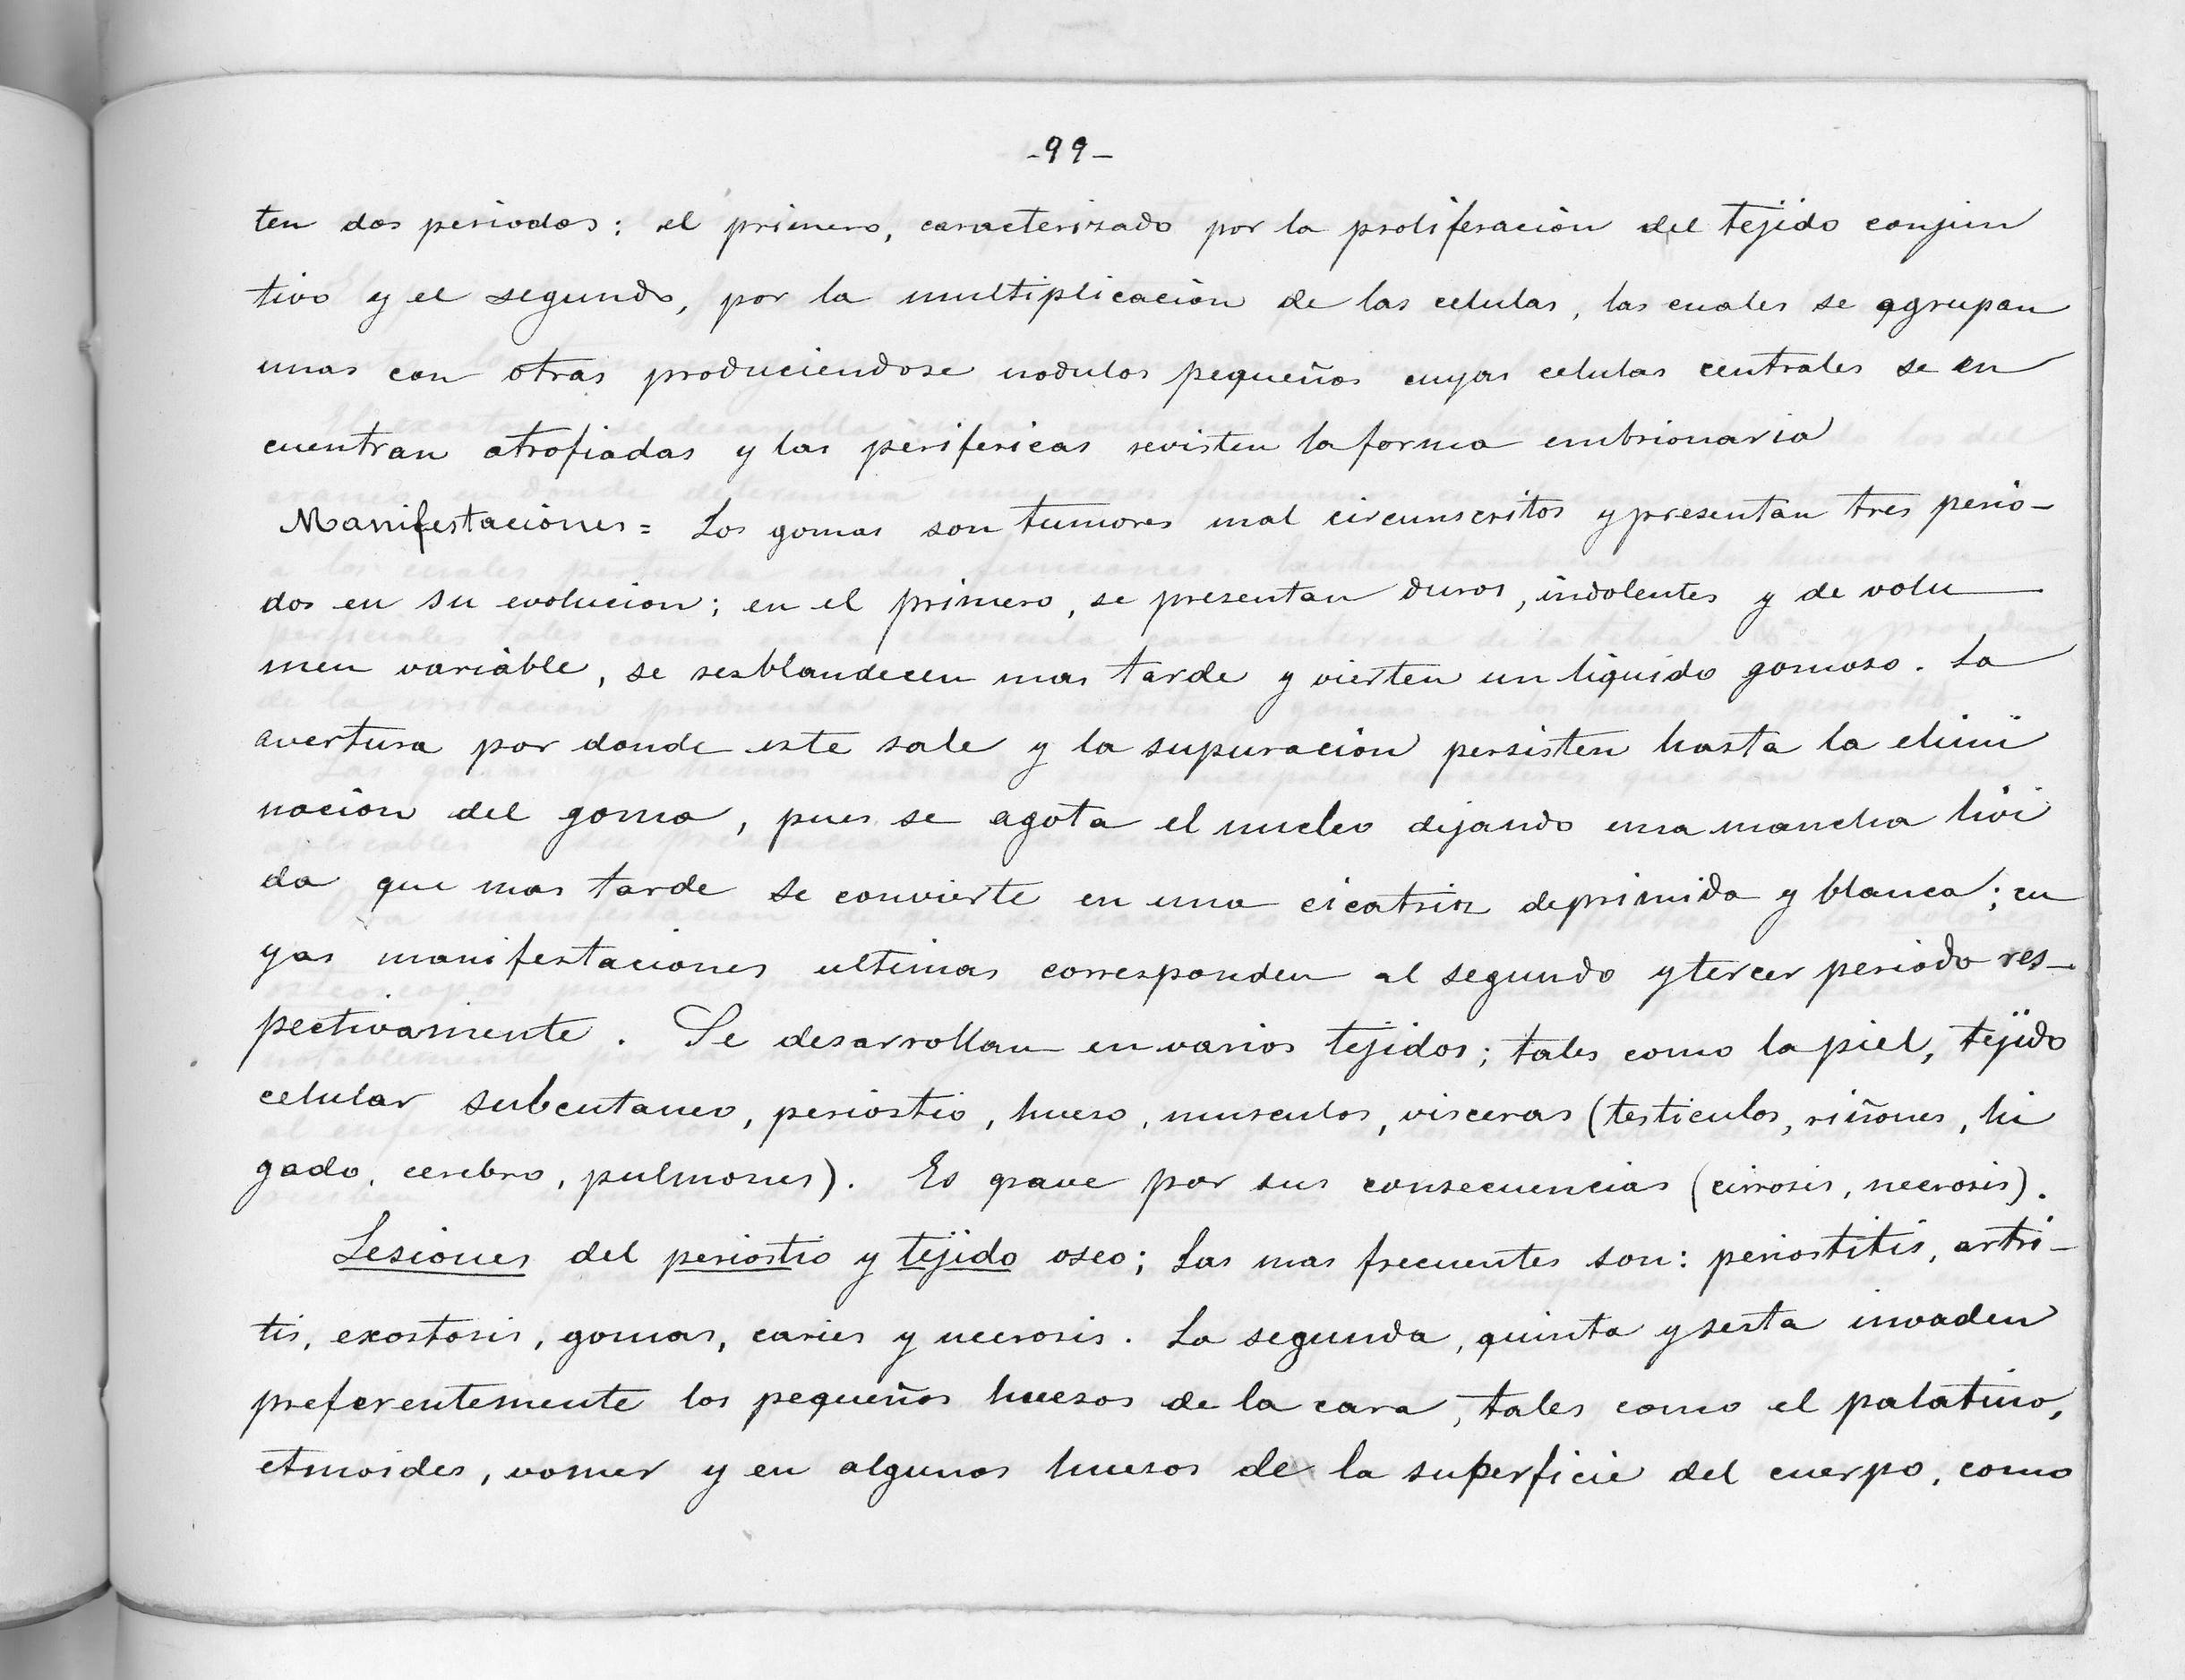 -99-
ten dos periodos: el primero, caracterizado por la proliferación del tejido conjun
tivo y el segundo, por la multiplicación de las celulas, las cuales se agrupan
unas con otras produciendose nodulos pequeños cuyas celulas centrales se en
cuentran atrofiadas y las perifericas revisten la forma embrionaria
Manifestaciones= Los gomas son tumores mal circunscritos y presentan tres perio-
dos en su evolucion; en el primero, se presentan duros, indolentes y de volu
men variable, se resblandecen mas tarde y vierten un liquido gomoso. La
avertura por donde este sale y la supuración persisten hasta la elimi
nación del goma, pues se agota el nucleo dejando una mancha livi
da que mas tarde se convierte en una cicatriz deprimida y blanca; cu
yas manifestaciones ultimas corresponden al segundo y tercer periodo res-
pectivamente. Se desarrollan en varios tejidos; tales como la piel, tejido
celular subcutaneo, periostio, hueso, musculos, visceras (testiculos, riñones, hi
gado, cerebro, pulmones). Es grave por sus consecuencias (cirrosis, necrosis).
Lesiones del periostio y tejido oseo; Las mas frecuentes son: periostitis, artri-
tis, exostosis, gomas, caries y necrosis. La segunda, quinta y sesta invaden
preferentemente los pequeños huesos de la cara, tales como el palatino,
etmoides, vomer y en algunos huesos de la superficie del cuerpo, como